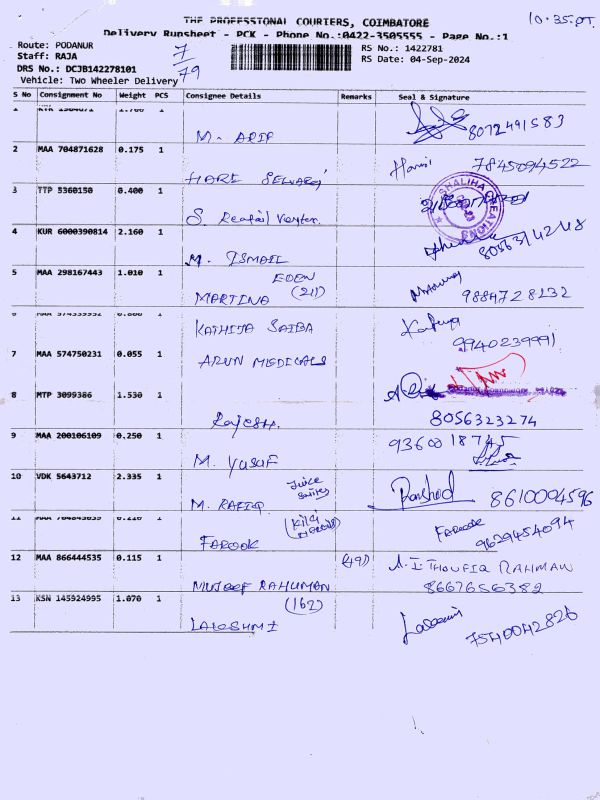 THE PROFESSIONAL COURIERS, COIMBATORE
10.35.PT.
Delivery Runsheet - PCK - Phone No.:0422-3505555 - Page No.:1
Route: PODANUR
Staff: RAJA
DRS No.: DCJB142278101
Vehicle: Two Wheeler Delivery
7
79
RS No.: 1422781
RS Date: 04-Sep-2024
S No Consignment No Weight PCS Consignee Details Remarks Seal & Signature
1 1
M. ARIF 8072491583
2 MAA 704871628 0.175 1
HARI SELVARAJ Hari 7845094522
3 TTP 5360150 0.400 1
S. SHALIHA CREATIONS
4 KUR 6000390814 2.160 1
M. ISMAIL
5 MAA 298167443 1.010 1 EDEN
MARTINA (211) 9884728132
6 MAA 574559952 1
KATHIJA SAIBA 9940239991
7 MAA 574750231 0.055 1 ARUN MEDICALS
8 MTP 3099386 1.530 1
Rajesh. 8056323274
9 MAA 200106109 0.250 1 9360018745
M. YUSUF
10 VDK 5643712 2.335 1 Juice
M. RAFIQ Rashed 8610094596
11 1 (Kilci
FAROOK FAROOK 9629454094
12 MAA 866444535 0.115 1 (49) A. I THOUFIQ RAHMAN
MUJEEF RAHUMAN 8667656382
13 KSN 145924995 1.070 1 (162)
LAKSHMI 7540042826